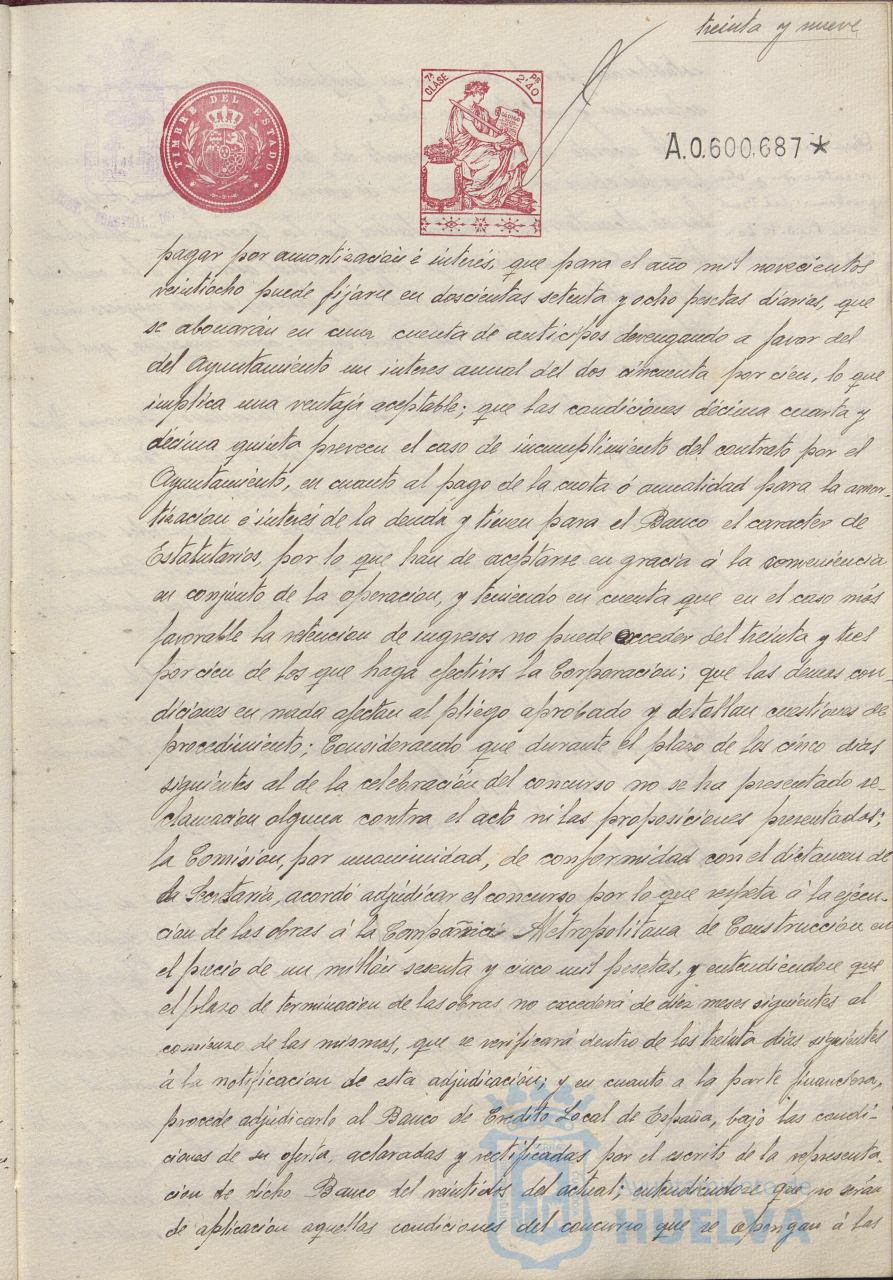 treinta y nueve
TIMBRE DEL ESTADO
7ª CLASE
Ps 2'40
A.0.600,687*
pagar por amortización é interés, que para el año mil novecientos
veintiocho puede fijarse en doscientas setenta y ocho pesetas diarias, que
se abonarán en una cuenta de anticipos devengando a favor del
del Ayuntamiento un interes anual del dos cincuenta por cien, lo que
implica una ventaja aceptable; que las condiciones décima cuarta y
décima quinta preveen el caso de incumplimiento del contrato por el
Ayuntamiento, en cuanto al pago de la cuota ó anualidad para la amor-
tizacion é interés de la deuda y tienen para el Banco el caracter de
Estatutarios, por lo que han de aceptarse en gracia á la conveniencia
en conjunto de la operacion, y teniendo en cuenta que en el caso más
favorable la retencion de ingresos no puede exceder del treinta y tres
por cien de los que haga efectivos la Corporacion; que las demas con-
diciones en nada afectan al pliego aprobado y detallan cuestiones de
procedimiento; Considerando que durante el plazo de los cinco dias
siguientes al de la celebración del concurso no se ha presentado re-
clamacion alguna contra el acto ni las proposiciones presentadas;
la Comision, por unanimidad, de conformidad con el dictamen de
la Secretaría, acordó adjudicar el concurso por lo que respeta á la ejecu-
cion de las obras á la Compañia Metropolitana de Construcción en
el precio de un millón sesenta y cinco mil pesetas, y entendiendose que
el plazo de terminacion de las obras no excederá de diez meses siguientes al
comienzo de las mismas, que se verificará dentro de los treinta dias siguientes
á la notificacion de esta adjudicación; y en cuanto a la parte financiera,
procede adjudicarlo al Banco de Crédito Local de España, bajo las condi-
ciones de su oferta, aclaradas y rectificadas por el escrito de la representa-
cion de dicho Banco del veintidos del actual, entendiendose que no serán
de aplicacion aquellas condiciones del concurso que se opongan á las
Ayuntamiento de
HUELVA